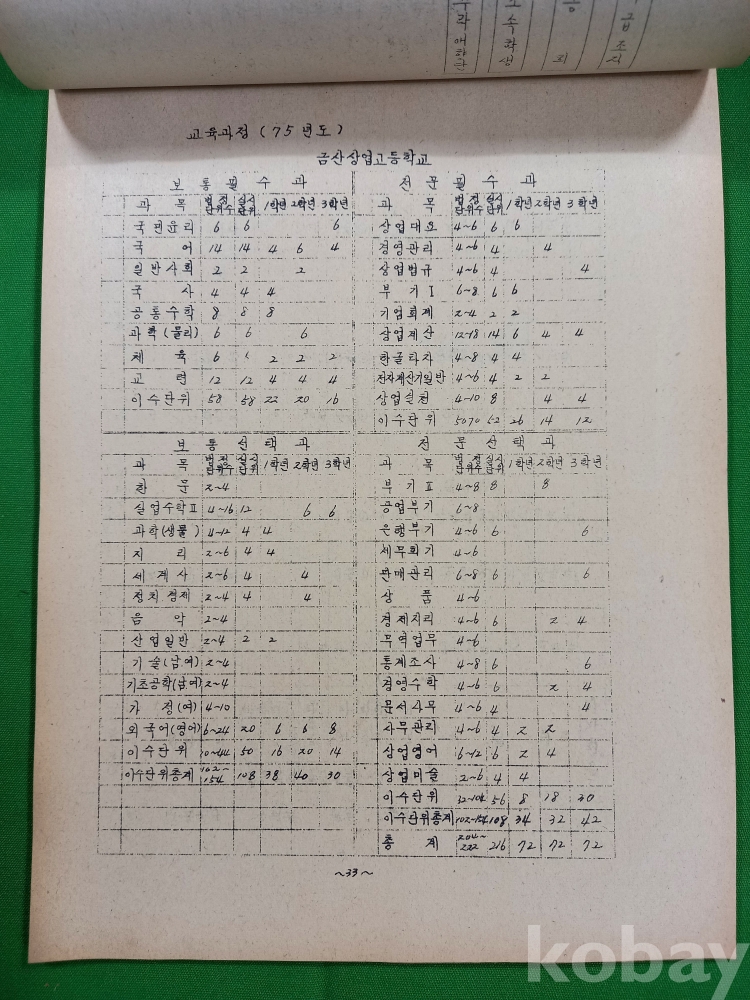 소속학생
급조지
회
교육과정 (75년도)
금산상업고등학교
보통필수과
과목 법정단위수 실시단위 1학년 2학년 3학년
국민윤리 6 6 6
국어 14 14 4 6 4
일반사회 2 2 2
국사 4 4 4
공통수학 8 8 8
과학(물리) 6 6 6
체육 6 2 2 2
교련 12 12 4 4 4
이수단위 58 58 22 20 16
전문필수과
과목 법정단위수 실시단위 1학년 2학년 3학년
상업대요 4~6 6 6
경영관리 4~6 4 4
상업법규 4~6 4 4
부기 I 6~8 6 6
기업회계 2~4 2 2
상업계산 12~18 14 6 4 4
한글타자 4~8 4 4
전자계산기일반 4~6 4 2 2
상업실천 4~10 8 4 4
이수단위 5070 52 26 14 12
보통선택과
과목 법정단위수 실시단위 1학년 2학년 3학년
한문 2~4
실업수학 II 4~16 12 6 6
과학(생물) 4~12 4 4
지리 2~6 4 4
세계사 2~6 4 4
정치경제 2~4 4 4
음악 2~4
산업일반 2~4 2 2
기술(남여) 2~4
기초공학(남여) 2~4
가정(여) 4~10
외국어(영어) 6~24 20 6 6 8
이수단위 0~44 50 16 20 14
이수단위총계 102~154 108 38 40 30
전문선택과
과목 법정단위수 실시단위 1학년 2학년 3학년
부기 II 4~8 8 8
공업부기 6~8
은행부기 4~6 6 6
세무회기 4~6
판매관리 6~8 6 6
상품 4~6
경제지리 4~6 6 2 4
무역업무 4~6
통계조사 4~8 6 6
경영수학 4~6 6 2 4
문서사무 4~6 4 4
사무관리 4~6 4 2 2
상업영어 6~12 6 2 4
상업미술 2~6 4 4
이수단위 32~104 56 8 18 30
이수단위총계 102~154 108 34 32 42
총계 204~222 216 72 72 72
~33~
kobay